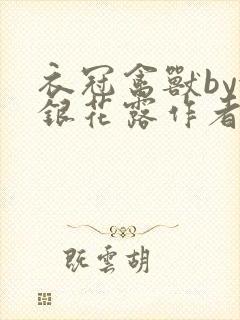 衣冠禽獸by
銀花露作者
既雲胡